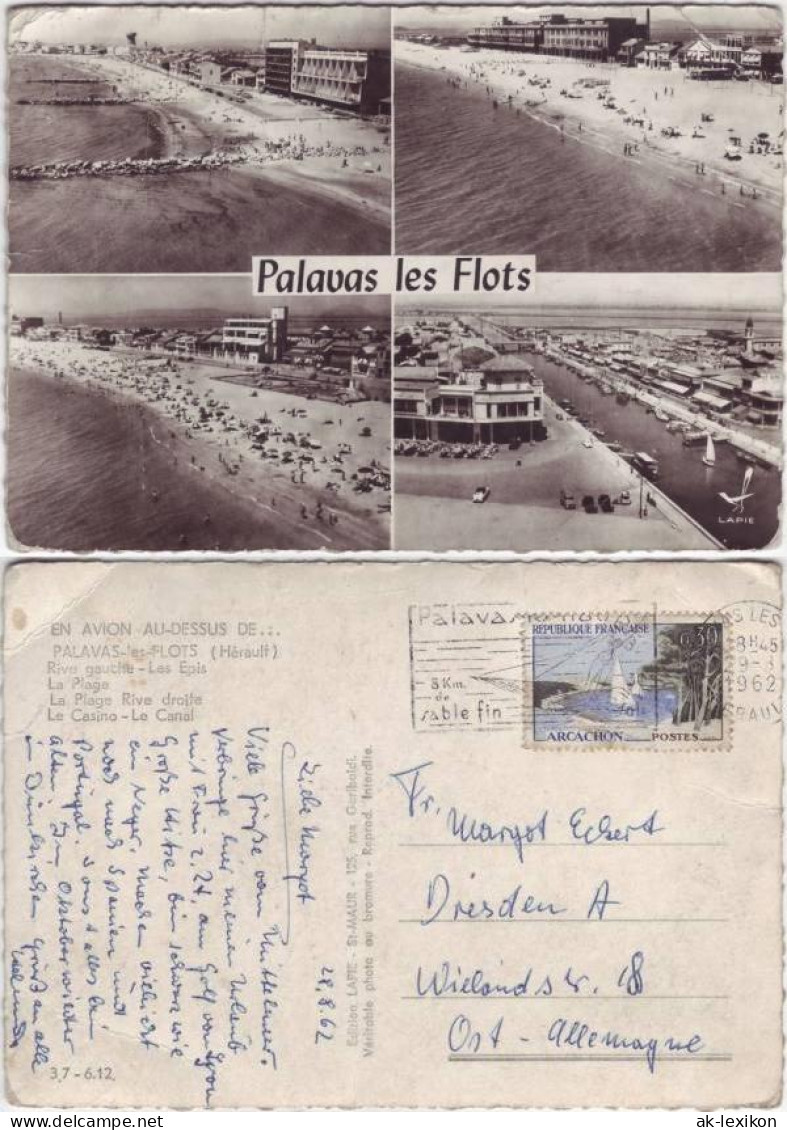 Palavas les Flots
LAPIE
EN AVION AU-DESSUS DE...
PALAVAS-les-FLOTS (Hérault)
Rive gauche - Les Epis
La Plage
La Plage Rive droite
Le Casino - Le Canal
Palavas
8 Km.
de
sable fin
8H45
1962
REPUBLIQUE FRANÇAISE
0,30
ARCACHON
POSTES
Liebe Margot
28.8.62
Viele Grüße vom Mittelmeer.
Verbringe hier meinen Urlaub
mit Frau z. Zt. am Golf von Lyon
Große Hitze, bin schwarz wie
ein Neger. Machen vielleicht
noch nach Spanien und
Portugal. Sonst alles beim
alten. Im Oktober wieder
in Grüßen alle
Edition LAPIE - St-MAUR - 125, rue Garibaldi.
Véritable photo au bromure - Reprod. Interdite.
3.7 - 6.12.
Fr.
Margot Eckert
Dresden A
Wielandstr. 18
Ost - Allemagne
ak-lexikon.de